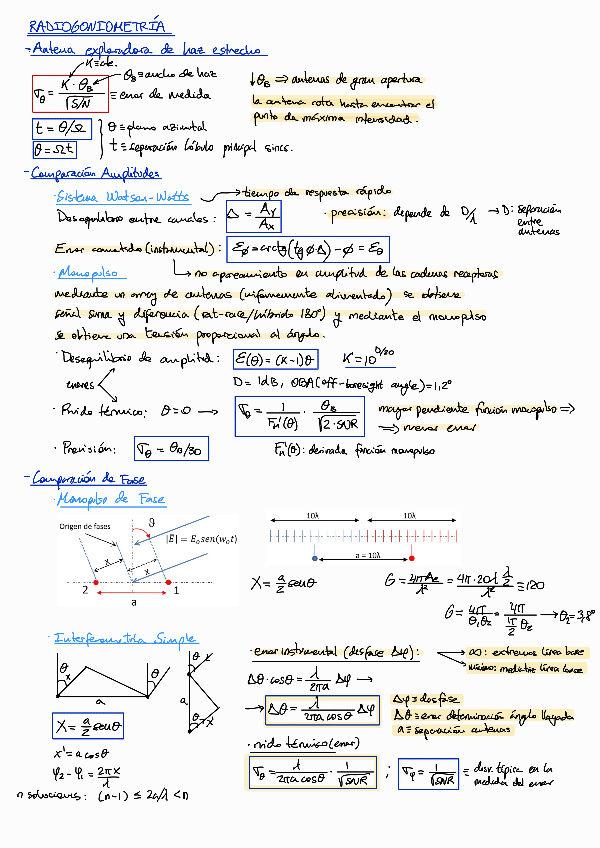 RADIOGONIOMETRÍA
- Antena exploradora de haz estrecho
K ≡ cte.
σθ = K · θB / √S/N
θB ≡ ancho de haz
≡ error de medida
↓θB ⇒ antenas de gran apertura
la antena rota hasta encontrar el
punto de máxima intensidad.
t = θ/Ω
θ = Ωt
θ ≡ plano azimutal
t ≡ separación lóbulo principal sincr.
- Comparación Amplitudes
· Sistema Watson-Watts → tiempo de respuesta rápido
Desequilibrio entre canales: Δ = AY / AX
· precisión: depende de D/λ → D: separación
entre
antenas
Error cometido (instrumental): Eφ = arctg(tgφ·Δ) - φ = Eθ
→ no apareamiento en amplitud de las cadenas receptoras
· Monopulso
mediante un array de antenas (uniformemente alimentado) se obtiene
señal suma y diferencia (rat-race/híbrido 180°) y mediante el monopulso
se obtiene una tensión proporcional al ángulo.
errores
· Desequilibrio de amplitud: E(θ) = (K-1)θ K = 10^D/20
D = 1dB, OBA (off-boresight angle) = 1,2°
· Ruido térmico: θ = 0 → σθ = 1 / Fm'(θ) · θB / √2·SNR
mayor pendiente función monopulso ⇒
⇒ menor error
· Precisión: σθ = θB/30
Fm'(θ): derivada función monopulso
- Comparación de Fase
· Monopulso de Fase
Origen de fases
ϑ
|E| = E₀sen(w₀t)
x
x
2
1
a
10λ
10λ
a = 10λ
X = a/2 senθ
G = 4πAe/λ² = 4π·20λ λ/2 / λ² = 120
G = 4π/θ₁θ₂ = 4π / π/2 θ₂ → θ₂ = 3,8°
· Interferometría Simple
θ
x
θ
a
θ
a
θ
X = a/2 senθ
x' = a cosθ
φ₂ - φ₁ = 2πx/λ
n soluciones: (n-1) ≤ 2a/λ < n
· error instrumental (desfase Δφ):
∞: extremos línea base
mínimo: mediatriz línea base
Δθ·cosθ = λ/2πa Δφ →
→ Δθ = λ / 2πa cosθ Δφ
Δφ ≡ desfase
Δθ ≡ error determinación ángulo llegada
a ≡ separación antenas
· ruido térmico (error)
σθ = λ / 2πa cosθ · 1 / √SNR ; σφ = 1 / √SNR
≡ desv. típica en la
medida del error